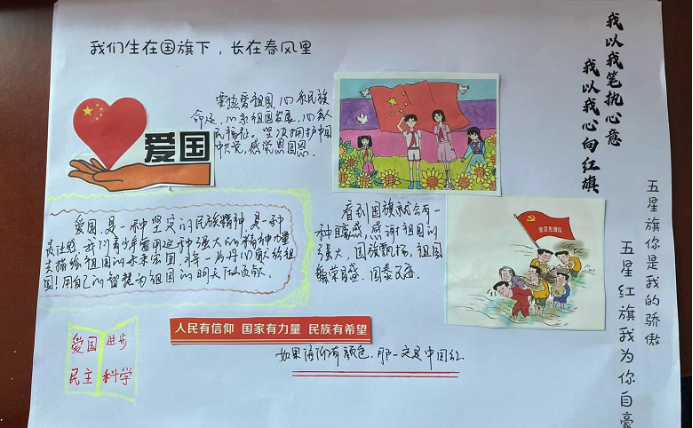 我们生在国旗下，长在春风里
我以我笔执心意
我以我心向红旗
爱国
热爱祖国，心系民族
命运，心系祖国发展，心系人
民福祉。坚决拥护中国
中共党，感党恩国恩。
五星旗你是我的骄傲
五星红旗我为你自豪
爱国，是一种坚定的民族精神，是一种
我们青少年要用这种强大的精神力量
去描绘祖国的未来宏图，将一片丹心献给祖
国！用自己的智慧为祖国的明天做贡献。
看到国旗就会有一
种自豪感，感谢祖国的
强大，国旗飘扬，祖国
繁荣昌盛，国泰民安
党员先锋队
人民有信仰 国家有力量 民族有希望
爱国 进步
民主 科学
如果信仰有颜色，那一定是中国红